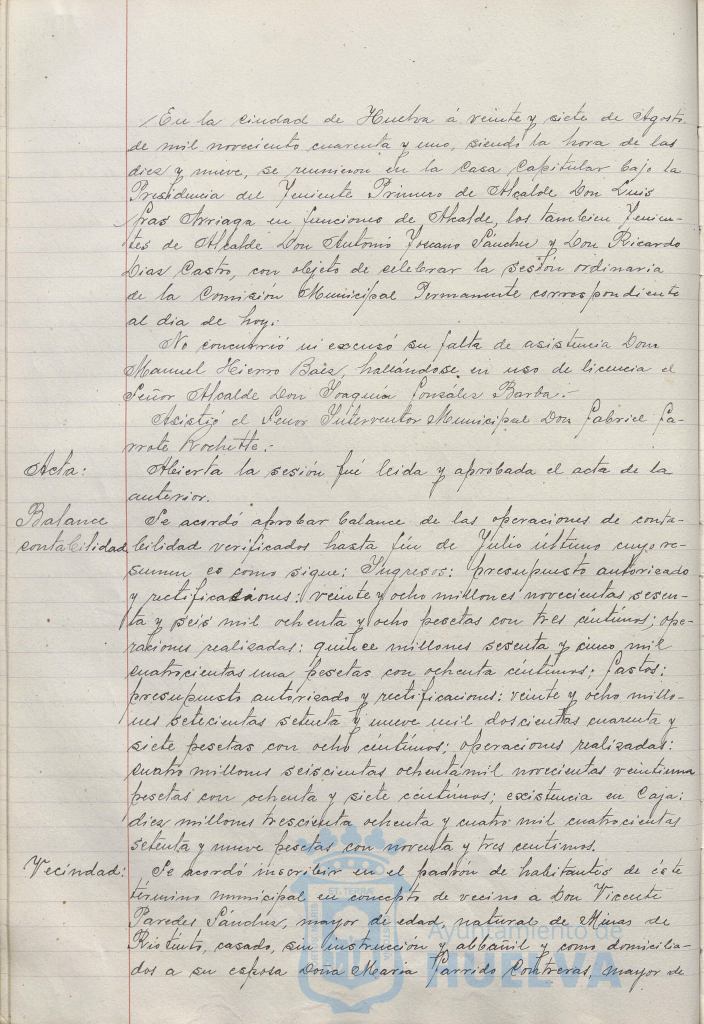 En la ciudad de Huelva á veinte y siete de Agosto
de mil novecientos cuarenta y uno, siendo la hora de las
diez y nueve, se reunieron en la Casa Capitular bajo la
Presidencia del Teniente Primero de Alcalde Don Luis
Gras Arriaga en funciones de Alcalde, los tambien Tenien-
tes de Alcalde Don Antonio Toscano Sánchez y Don Ricardo
Diaz Castro, con objeto de celebrar la sesión ordinaria
de la Comisión Municipal Permanente correspondiente
al dia de hoy.
No concurrió ni excusó su falta de asistencia Don
Manuel Hierro Baez, hallándose en uso de licencia el
Señor Alcalde Don Joaquín González Barba.-
Asistió el Señor Interventor Municipal Don Gabriel Ga-
rrote Rochette.-
Acta: Abierta la sesión fué leida y aprobada el acta de la
anterior.
Balance Se acordó aprobar balance de las operaciones de conta-
contabilidad bilidad verificados hasta fin de Julio último cuyo re-
sumen es como sigue: Ingresos: presupuesto autorizado
y rectificaciones: veinte y ocho millones novecientas sesen-
ta y seis mil ochenta y ocho pesetas con tres céntimos; ope-
raciones realizadas: quince millones sesenta y cinco mil
cuatrocientas una pesetas con ochenta céntimos; Gastos:
presupuesto autorizado y rectificaciones: veinte y ocho millo-
nes setecientas setenta y nueve mil doscientas cuarenta y
siete pesetas con ocho céntimos; operaciones realizadas:
cuatro millones seiscientas ochenta mil novecientas veintiuna
pesetas con ochenta y siete céntimos; existencia en Caja:
diez millones trescienta ochenta y cuatro mil cuatrocientas
setenta y nueve pesetas con noventa y tres centimos.
Vecindad: Se acordó inscribir en el padrón de habitantes de éste
término municipal en concepto de vecino a Don Vicente
Paredes Sánchez, mayor de edad, natural de Minas de
Riotinto, casado, sin instrucción y albañil y como domicilia-
dos a su esposa Doña Maria Garrido Contreras, mayor de
Ayuntamiento de
HUELVA